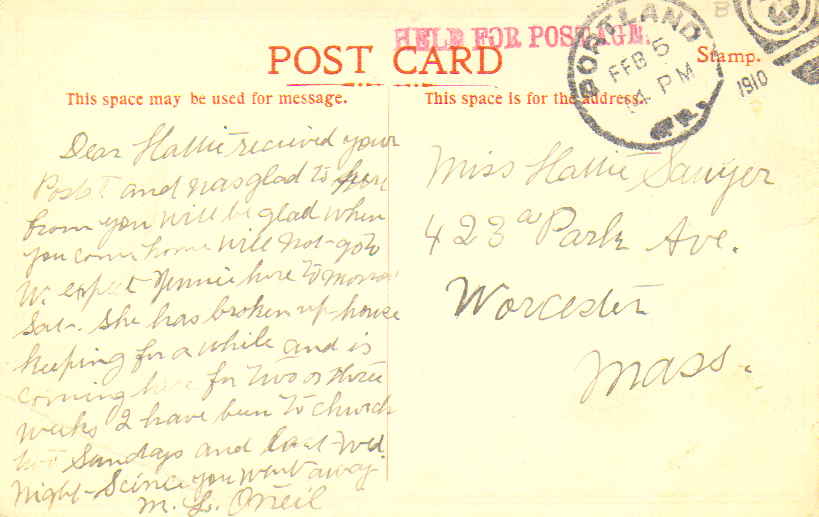 HELD FOR POSTAGE.
POST CARD
Stamp.
PORTLAND
FEB 5
4 PM
1910
ME.
This space may be used for message.
This space is for the address.
Dear Hattie recieved your
Post and was glad to hear
from you will be glad when
you come home will not go to
W. expect Nennie here Tomorrow
Sat. She has broken up house
keeping for a while and is
coming here for two or three
weeks I have been to church
two Sundays and last Wed.
Night Scince you went away
M. L. Oneil
Miss Hattie Sawyer
423 a Park Ave.
Worcester
Mass.